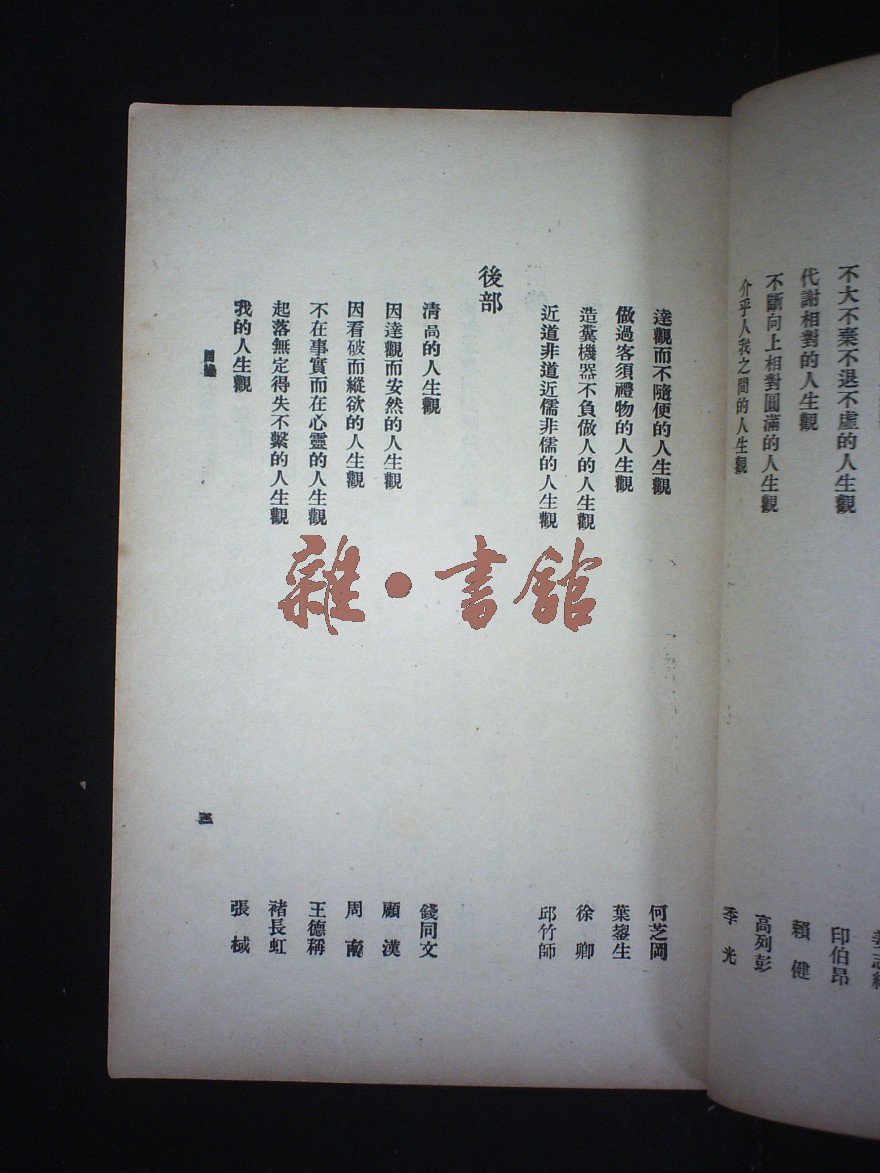 不大不棄不退不虛的人生觀
印伯昂
代謝相對的人生觀
賴健
不斷向上相對圓滿的人生觀
高列彭
介乎人我之間的人生觀
季光
達觀而不隨便的人生觀
何芝岡
做過客須禮物的人生觀
葉鋆生
造糞機器不負做人的人生觀
徐卿
近道非道近儒非儒的人生觀
邱竹師
後部
清高的人生觀
錢同文
因達觀而安然的人生觀
顧漢
因看破而縱欲的人生觀
周南
不在事實而在心靈的人生觀
王德稱
起落無定得失不繫的人生觀
褚長虹
我的人生觀
張棫
目錄
三
雜·書館